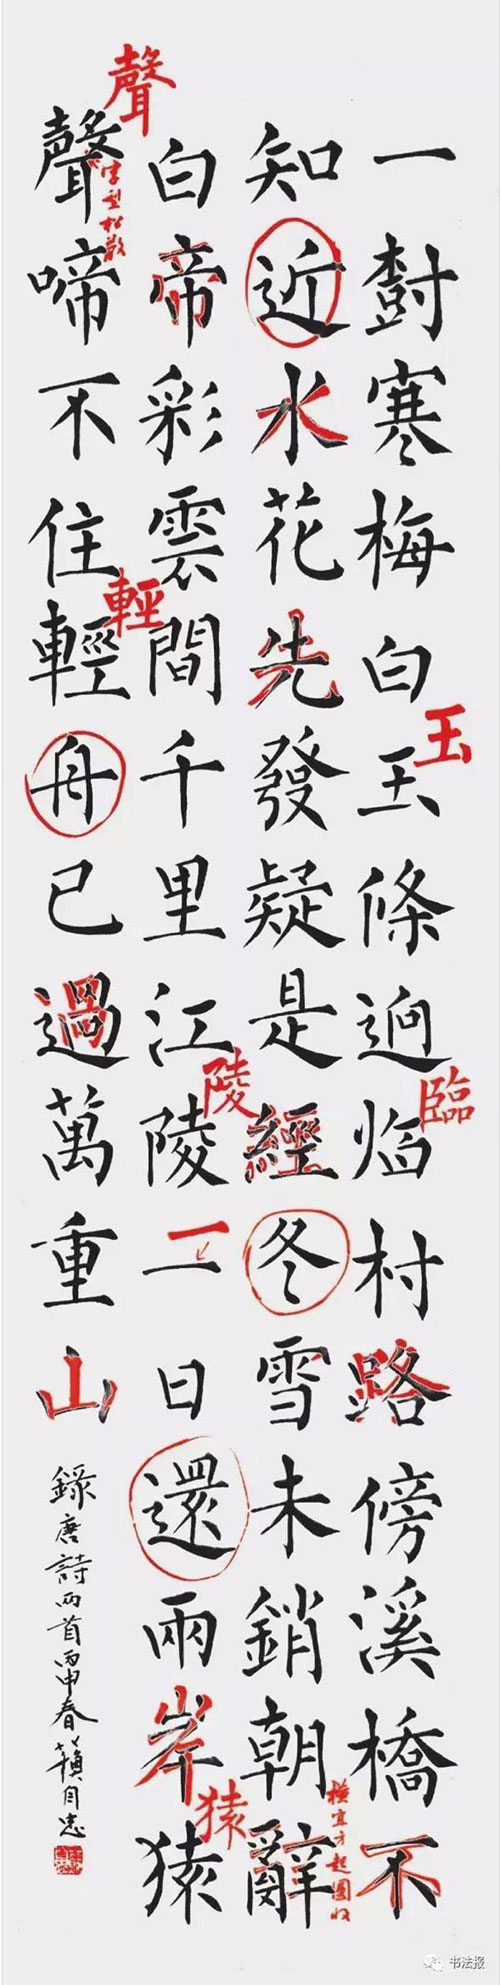 一樹寒梅白玉條迥临村路傍溪橋不
知近水花先發疑是經冬雪未銷朝辭
白帝彩雲間千里江陵一日還兩岸猿
聲啼不住輕舟已過萬重山
錄唐詩兩首丙申春
玉
臨
横宜方起圆收
陵
猿
聲
字型松散
輕
书法报